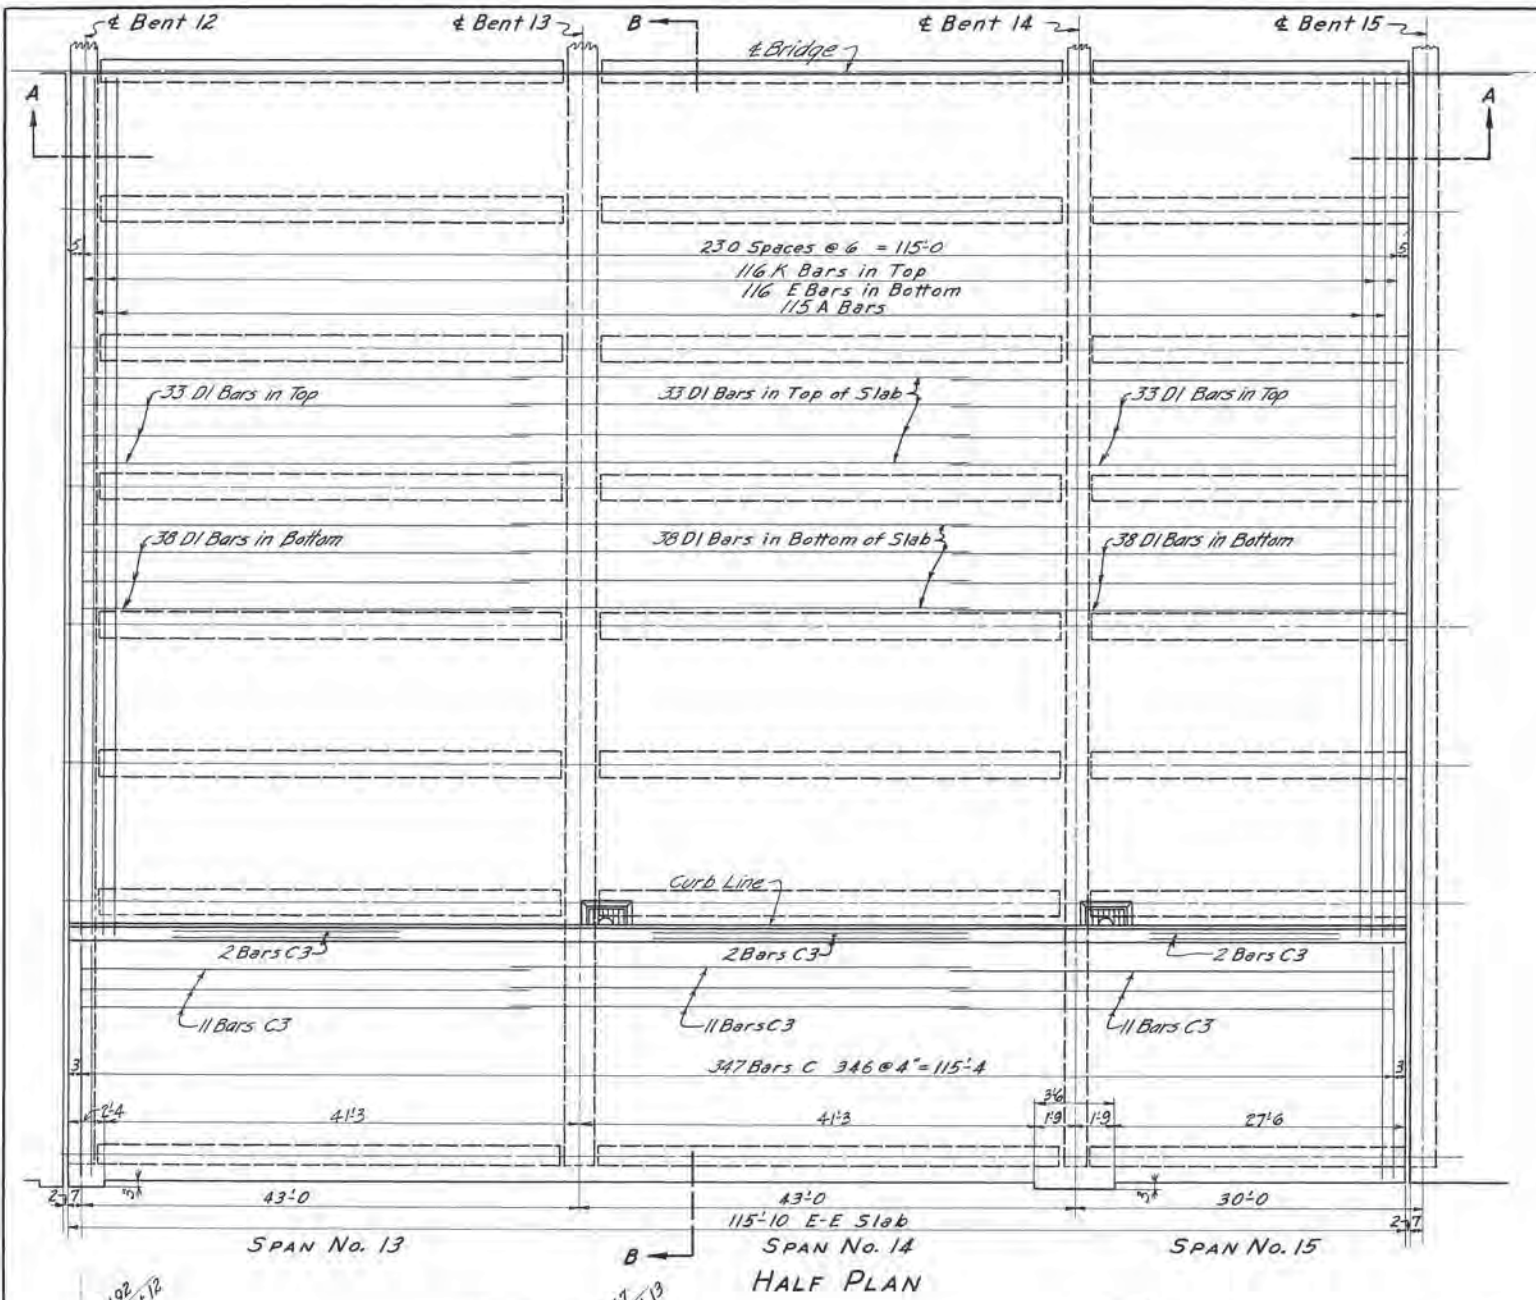 ℄ Bent 12
℄ Bent 13
B
℄ Bent 14
℄ Bent 15
℄ Bridge
A
A
5
5
230 Spaces @ 6 = 115'-0
116 K Bars in Top
116 E Bars in Bottom
115 A Bars
33 D1 Bars in Top
33 D1 Bars in Top of Slab
33 D1 Bars in Top
38 D1 Bars in Bottom
38 D1 Bars in Bottom of Slab
38 D1 Bars in Bottom
Curb Line
2 Bars C3
2 Bars C3
2 Bars C3
11 Bars C3
11 Bars C3
11 Bars C3
3
347 Bars C 346 @ 4" = 115'-4
3
2'-4
41'-3
41'-3
3'-6
1'-9
1'-9
27'-6
3
3
43'-0
43'-0
30'-0
115'-10 E-E Slab
SPAN No. 13
B
SPAN No. 14
SPAN No. 15
HALF PLAN